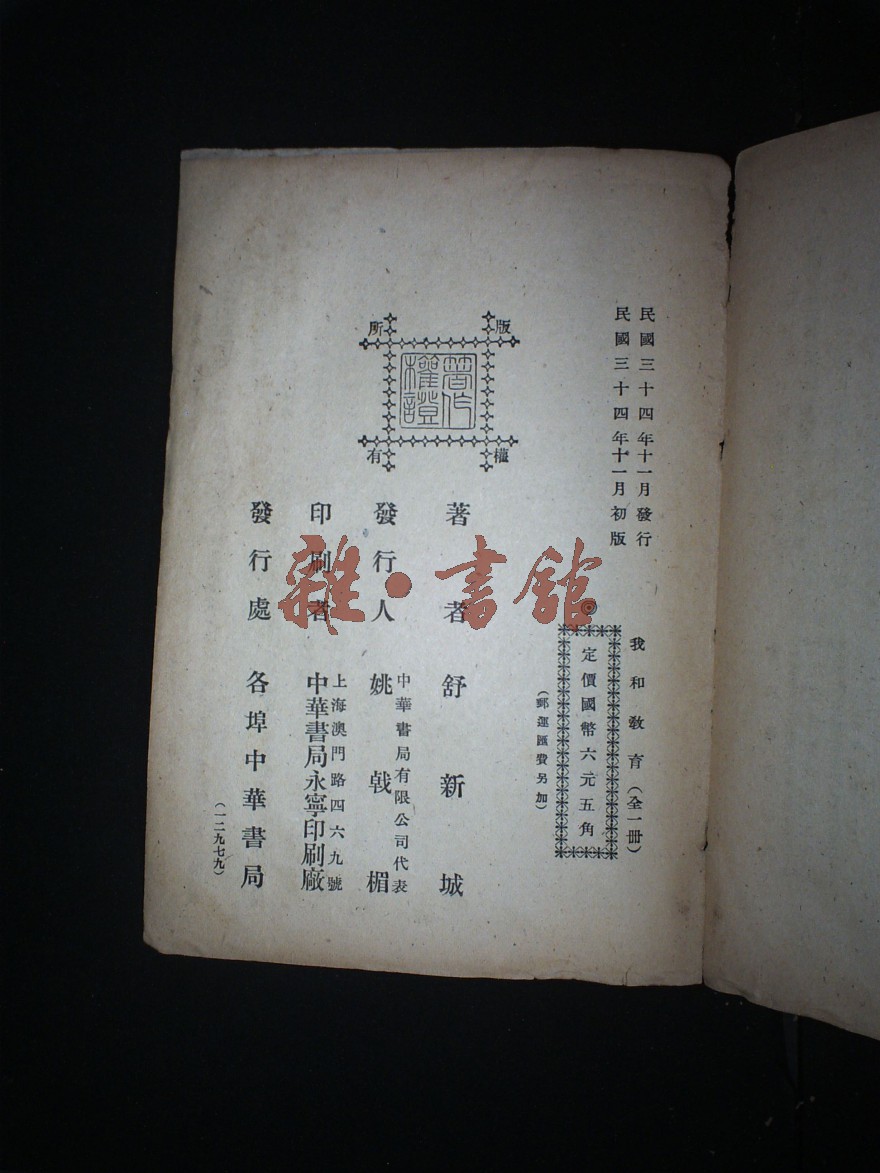 民國三十四年十一月發行
民國三十四年十一月初版
我和教育（全一冊）
定價國幣六元五角
（郵運匯費另加）
版權所有
著作權證
著者 舒新城
發行人 中華書局有限公司代表 姚戟楣
印刷者 上海澳門路四六九號 中華書局永寧印刷廠
發行處 各埠中華書局
（一二九七九）
雜·書館